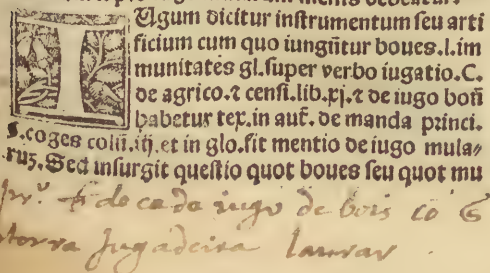 IUgum dicitur instrumentum seu arti
ficium cum quo iungūtur boues.l.im
munitates gl.super verbo iugatio.C.
de agrico.⁊ censi.lib.xj.⁊ de iugo boū
habetur tex.in aut̄. de manda princi.
§.coges coliī.iij.et in glo.fit mentio de iugo mula⸗
rum.Sed insurgit questio quot boues seu quot mu
de cada iugo de bois cõ
terra Jugadeira laurar